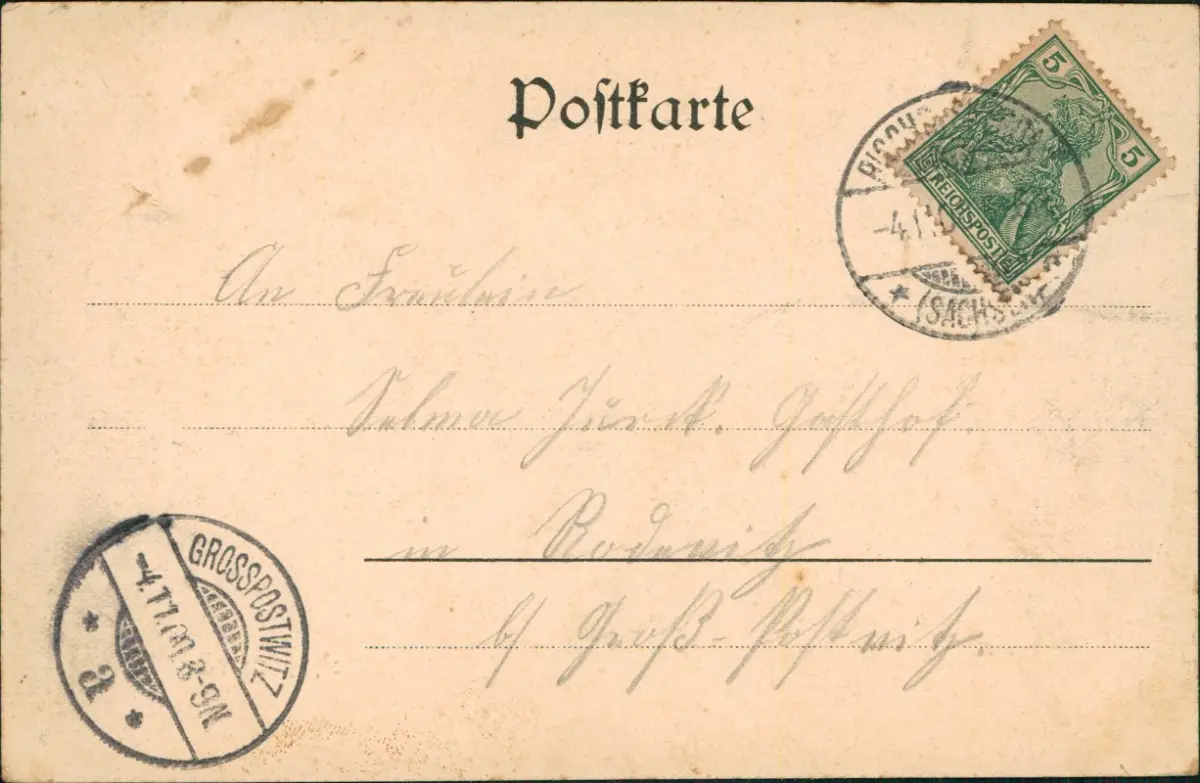 Postkarte
5 5
REICHSPOST
-4.11.
(SACHSEN)
An Fräulein
Selma Jurck. Gasthof.
in Rodewitz
b/ Groß-Postwitz.
GROSSPOSTWITZ
-4.11.00. 8-9N
a